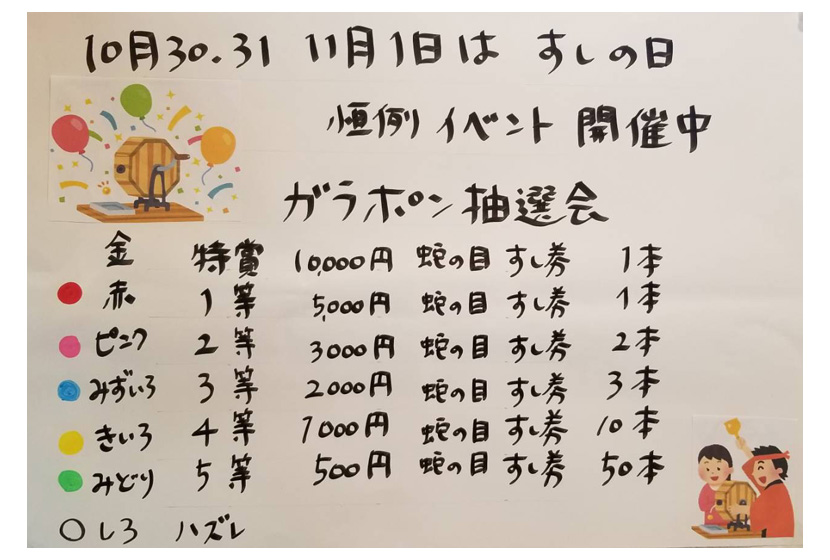 10月30.31 11月1日は すしの日
恒例 イベント 開催中
ガラポン抽選会
金 特賞 10,000円 蛇の目 すし券 1本
赤 1等 5,000円 蛇の目 すし券 1本
ピンク 2等 3000円 蛇の目 すし券 2本
みずいろ 3等 2000円 蛇の目 すし券 3本
きいろ 4等 1000円 蛇の目 すし券 10本
みどり 5等 500円 蛇の目 すし券 50本
○しろ ハズレ